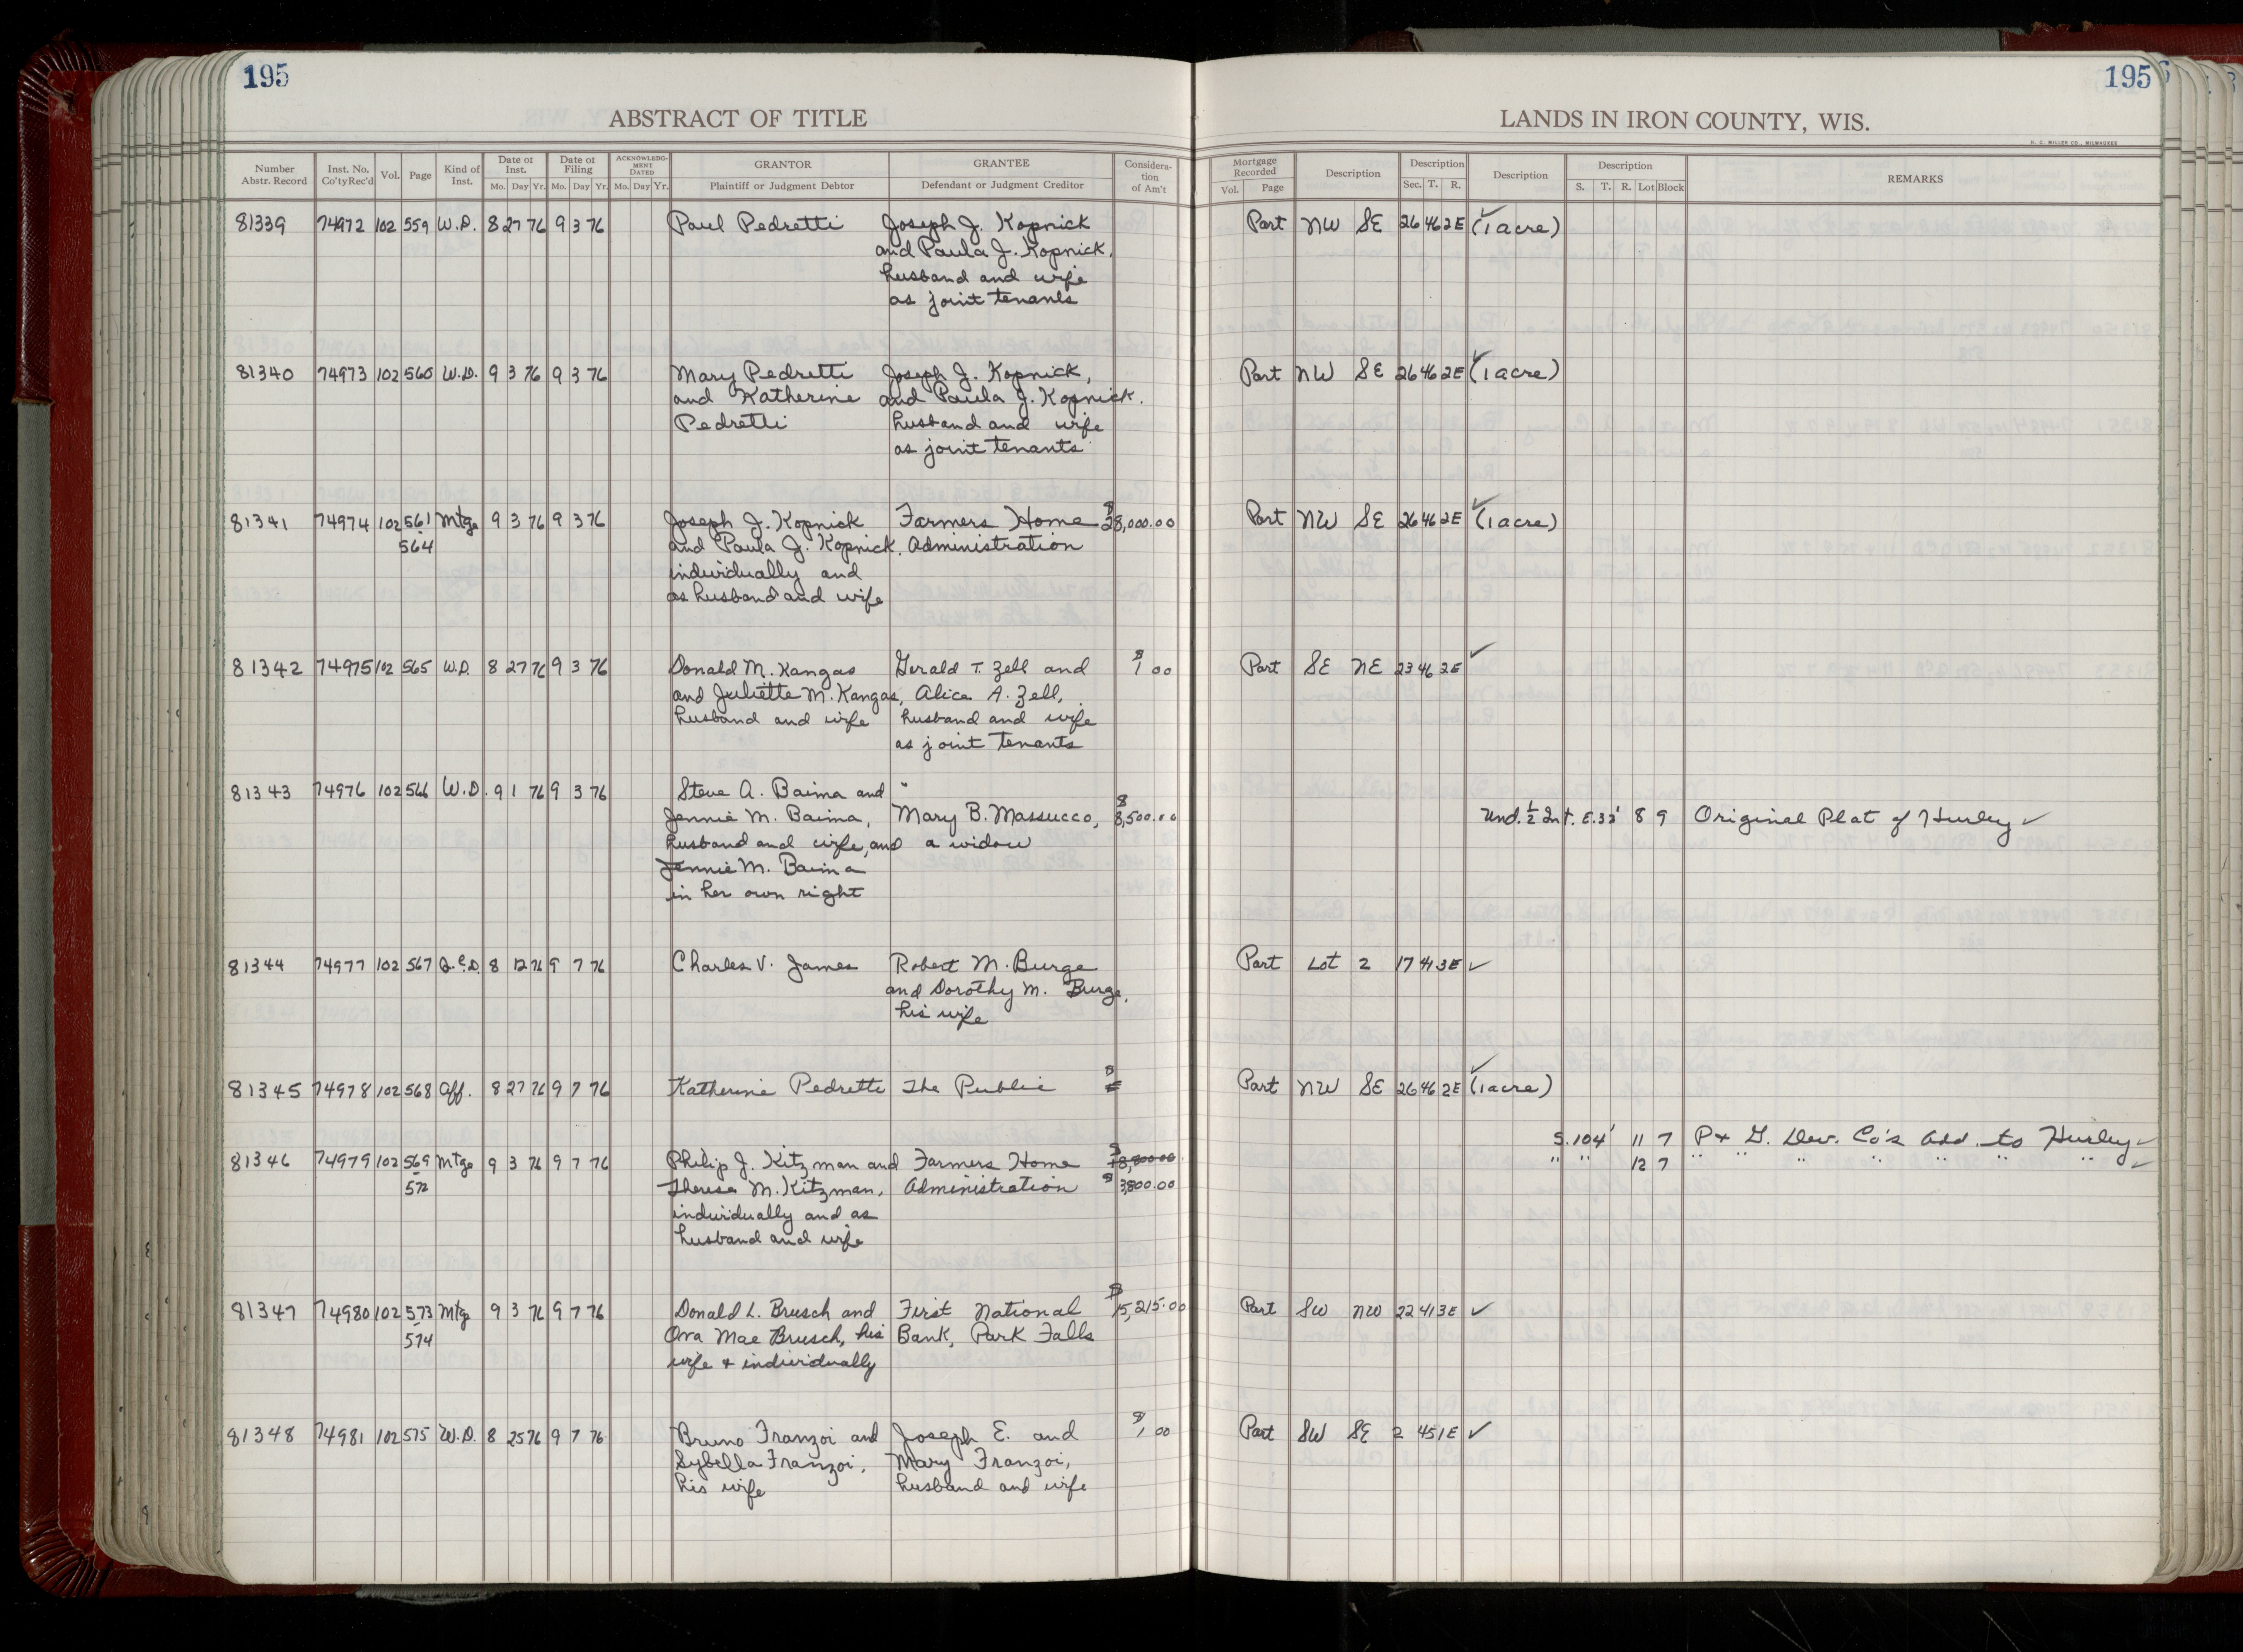 195
195
ABSTRACT OF TITLE
LANDS IN IRON COUNTY, WIS.
H. C. MILLER CO., MILWAUKEE
Number Abstr. Record Inst. No. Co'ty Rec'd Vol. Page Kind of Inst. Date of Inst. Mo. Day Yr. Date of Filing Mo. Day Yr. ACKNOWLEDGMENT DATED Mo. Day Yr. GRANTOR Plaintiff or Judgment Debtor GRANTEE Defendant or Judgment Creditor Consideration of Am't Mortgage Recorded Vol. Page Description Description Sec. T. R. Description Description S. T. R. Lot Block REMARKS
81339 74972 102 559 W.D. 8 27 76 9 3 76 Paul Pedretti Joseph J. Kopnick Part NW SE 26 46 2E (1 acre)
and Paula J. Kopnick,
husband and wife
as joint tenants
81340 74973 102 560 W.D. 9 3 76 9 3 76 Mary Pedretti Joseph J. Kopnick, Part NW SE 26 46 2E (1 acre)
and Katherine and Paula J. Kopnick,
Pedretti husband and wife
as joint tenants
81341 74974 102 561 Mtge 9 3 76 9 3 76 Joseph J. Kopnick Farmers Home $28,000.00 Part NW SE 26 46 2E (1 acre)
564 and Paula J. Kopnick, Administration
individually and
as husband and wife
81342 74975 102 565 W.D. 8 27 76 9 3 76 Donald M. Kangas Gerald T. Zell and $1 00 Part SE NE 23 46 2E
and Juliette M. Kangas, Alice A. Zell,
husband and wife husband and wife
as joint tenants
81343 74976 102 566 W.D. 9 1 76 9 3 76 Steve A. Baima and
Jennie M. Baima, Mary B. Massucco, $8,500.00 Und. ½ Int. E. 33' 8 9 Original Plat of Hurley
husband and wife, and a widow
Jennie M. Baima
in her own right
81344 74977 102 567 Q.C.D. 8 12 76 9 7 76 Charles V. James Robert M. Burge Part Lot 2 17 41 3E
and Dorothy M. Burge,
his wife
81345 74978 102 568 Aff. 8 27 76 9 7 76 Katherine Pedretti The Public $ Part NW SE 26 46 2E (1 acre)
S. 104' 11 7 P + G. Dev. Co's Add. to Hurley
81346 74979 102 569 Mtge 9 3 76 9 7 76 Philip J. Kitzman and Farmers Home $18,800.00 " " 12 7 " " " " " "
572 Theresa M. Kitzman, Administration $3,800.00
individually and as
husband and wife
81347 74980 102 573 Mtg 9 3 76 9 7 76 Donald L. Brusch and First National $15,215.00 Part SW NW 22 41 3E
574 Ora Mae Brusch, his Bank, Park Falls
wife + individually
81348 74981 102 575 W.D. 8 25 76 9 7 76 Bruno Franzoi and Joseph E. and $1 00 Part SW SE 2 45 1E
Sybella Franzoi, Mary Franzoi,
his wife husband and wife